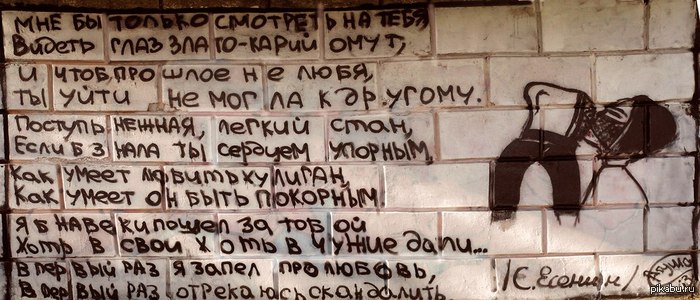 МНЕ БЫ ТОЛЬКО СМОТРЕТЬ НА ТЕБЯ,
ВИДЕТЬ ГЛАЗ ЗЛАТО-КАРИЙ ОМУТ,
И ЧТОБ, ПРОШЛОЕ НЕ ЛЮБЯ,
ТЫ УЙТИ НЕ МОГЛА К ДРУГОМУ.
ПОСТУПЬ НЕЖНАЯ, ЛЕГКИЙ СТАН,
ЕСЛИ Б ЗНАЛА ТЫ СЕРДЦЕМ УПОРНЫМ,
КАК УМЕЕТ ЛЮБИТЬ ХУЛИГАН,
КАК УМЕЕТ ОН БЫТЬ ПОКОРНЫМ.
Я Б НАВЕКИ ПОШЕЛ ЗА ТОБОЙ
ХОТЬ В СВОИ ХОТЬ В ЧУЖИЕ ДАЛИ...
В ПЕРВЫЙ РАЗ Я ЗАПЕЛ ПРО ЛЮБОВЬ,
В ПЕРВЫЙ РАЗ ОТРЕКАЮСЬ СКАНДАЛИТЬ
/С.ЕСЕНИН/
pikabu.ru